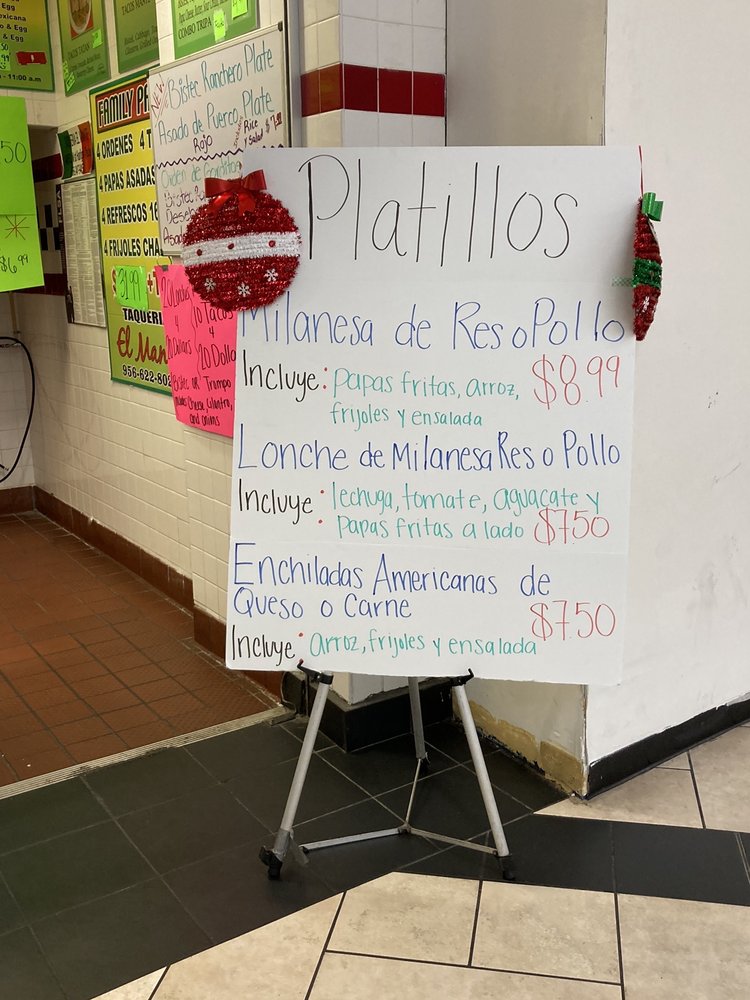 exicana
o & Egg
& Egg
- 11:00 am
COMBO TRIPA
50
$6.99
FAMILY PA
4 ORDENES
4 PAPAS ASADAS
4 REFRESCOS 16
4 FRIJOLES CHA
31.99
TAQUERI
El Man
956-622-80
Bistec Ranchero Plate
Asado de Puerco Plate
Rojo
Rice
y Salad
10 Tacos
4
20 Dolla
Bistec or Trompo
Cheese, Cilantro,
and onions
Platillos
Milanesa de Res o Pollo
Incluye: papas fritas, arroz,
frijoles y ensalada
$8.99
Lonche de Milanesa Res o Pollo
Incluye: lechuga, tomate, aguacate y
papas fritas a lado $7.50
Enchiladas Americanas de
Queso o Carne
$7.50
Incluye: arroz, frijoles y ensalada